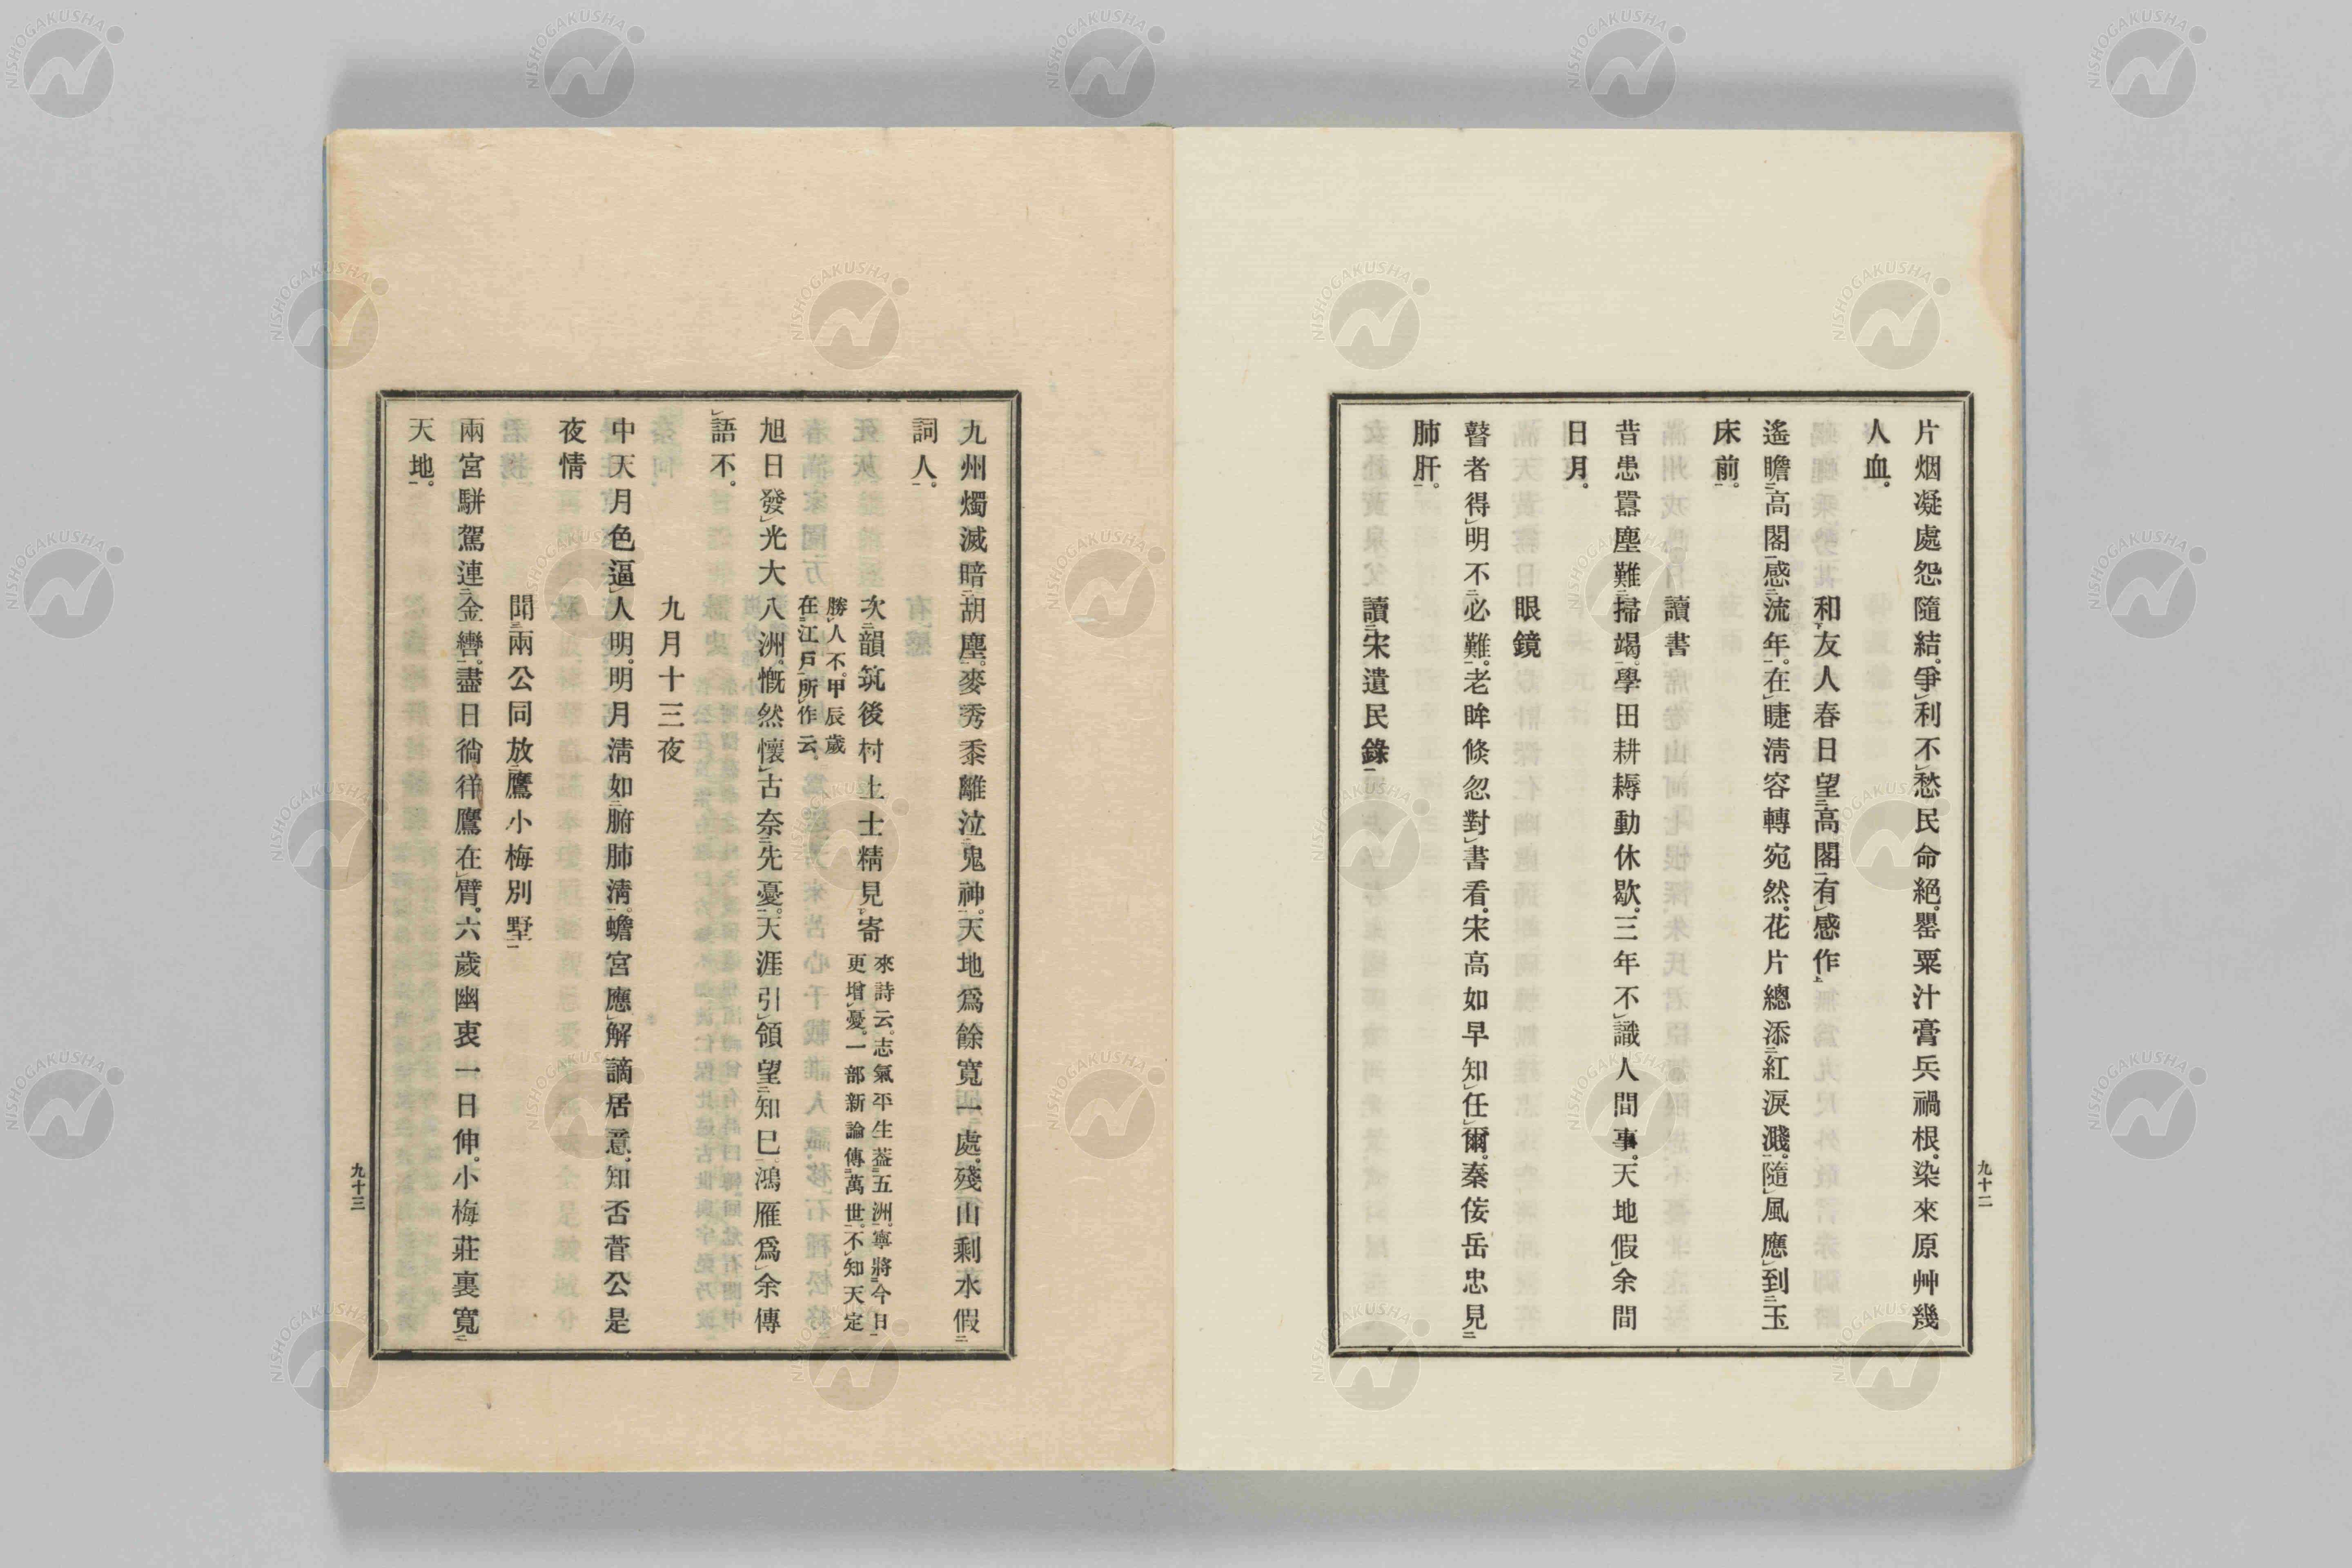 片烟凝處怨隨結。爭利不愁民命絕。罌粟汁膏兵禍根。染來原艸幾
人血。
和友人春日望高閣有感作
遙瞻高閣感流年。在睫淸容轉宛然。花片總添紅淚濺。隨風應到玉
床前。
讀書
昔患囂塵難掃竭。學田耕耨動休歇。三年不識人間事。天地假余間
日月。
眼鏡
瞽者得明不必難。老眸倐忽對書看。宋高如早知任爾。秦侫岳忠見
肺肝。
讀宋遺民錄
九十二
九州燭滅暗胡塵。麥秀黍離泣鬼神。天地爲餘寬一處。殘山剩水假
詞人。
次韻筑後村上士精見寄
來詩云。志氣平生葢五洲。寧將今日
更增憂。一部新論傳萬世。不知天定
勝人不。甲辰歲
在江戶所作云。
旭日發光大八洲。慨然懷古奈先憂。天涯引領望知巳。鴻雁爲余傳
語不。
九月十三夜
中天月色逼人明。明月淸如腑肺淸。蟾宮應解謫居意。知否菅公是
夜情
聞兩公同放鷹小梅別墅
兩宮駢駕連金轡。盡日徜徉鷹在臂。六歲幽衷一日伸。小梅莊裏寬
天地。
九十三
NISHOGAKUSHA